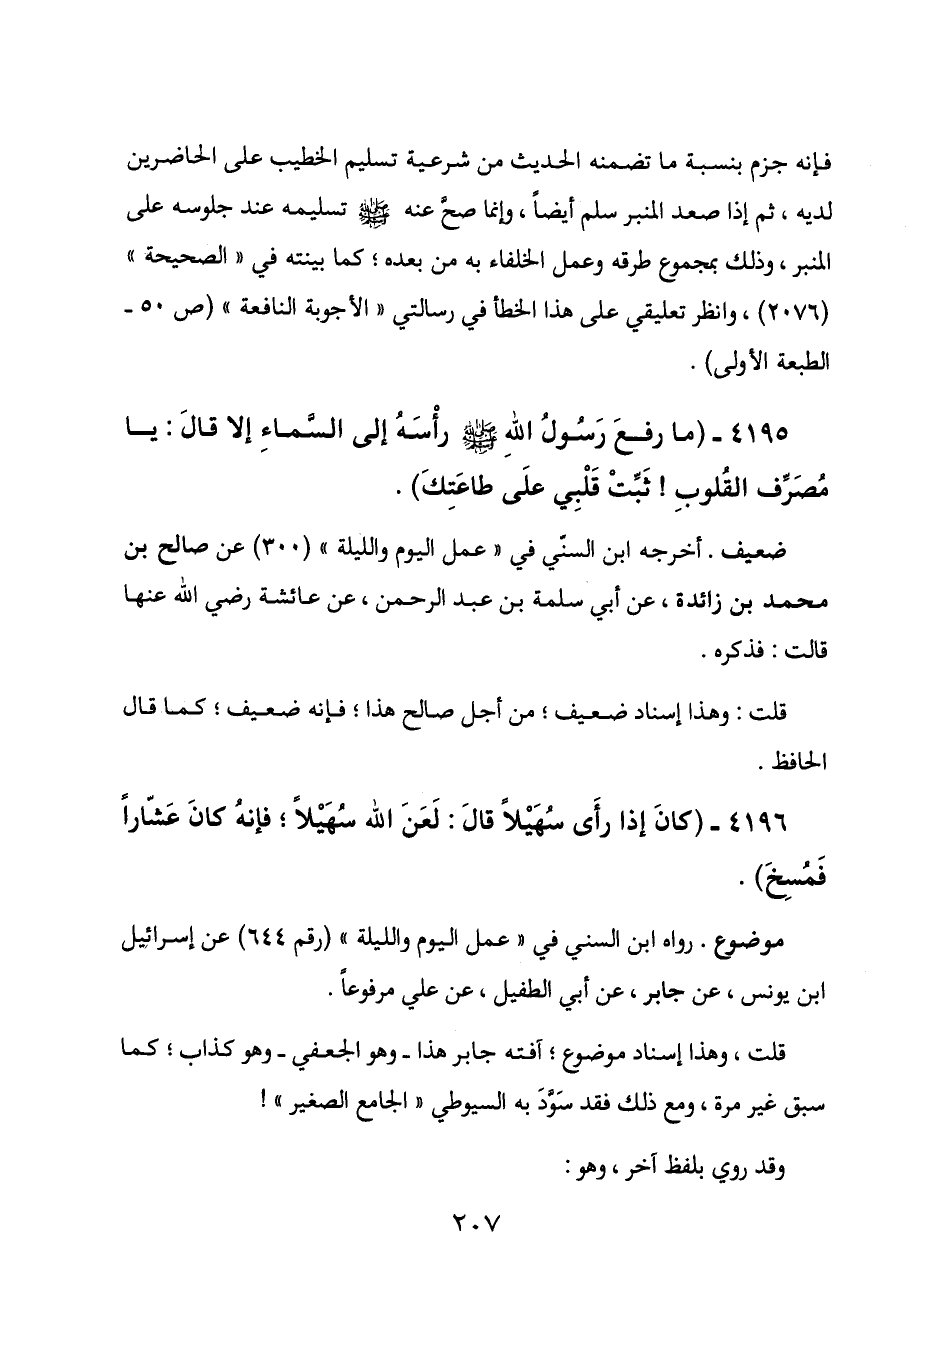 فإنه جزم بنسبة ما تضمنه الحديث من شرعية تسليم الخطيب على الحاضرين
لديه ، ثم إذا صعد المنبر سلم أيضاً ، وإنما صحَّ عنه ﷺ تسليمه عند جلوسه على
المنبر ، وذلك بمجموع طرقه وعمل الخلفاء به من بعده ؛ كما بينته في « الصحيحة »
(٢٠٧٦) ، وانظر تعليقي على هذا الخطأ في رسالتي « الأجوبة النافعة » (ص ٥٠ -
الطبعة الأولى) .
٤١٩٥ - (ما رفعَ رَسُولُ اللهِ ﷺ رأْسَهُ إلى السَّماءِ إلا قالَ : يا
مُصَرِّف القُلوبِ ! ثَبِّتْ قَلْبِي علَى طاعَتِكَ) .
ضعيف . أخرجه ابن السنّي في « عمل اليوم والليلة » (٣٠٠) عن صالح بن
محمد بن زائدة ، عن أبي سلمة بن عبد الرحمن ، عن عائشة رضي الله عنها
قالت : فذكره .
قلت : وهذا إسناد ضعيف ؛ من أجل صالح هذا ؛ فإنه ضعيف ؛ كما قال
الحافظ .
٤١٩٦ - (كانَ إذا رأَى سُهَيْلاً قالَ : لَعَنَ الله سُهَيْلاً ؛ فإنهُ كانَ عَشّاراً
فَمُسِخَ) .
موضوع . رواه ابن السني في « عمل اليوم والليلة » (رقم ٦٤٤) عن إسرائيل
ابن يونس ، عن جابر ، عن أبي الطفيل ، عن علي مرفوعاً .
قلت ، وهذا إسناد موضوع ؛ آفته جابر هذا - وهو الجعفي - وهو كذاب ؛ كما
سبق غير مرة ، ومع ذلك فقد سَوَّدَ به السيوطي « الجامع الصغير » !
وقد روي بلفظ آخر ، وهو :
٢٠٧